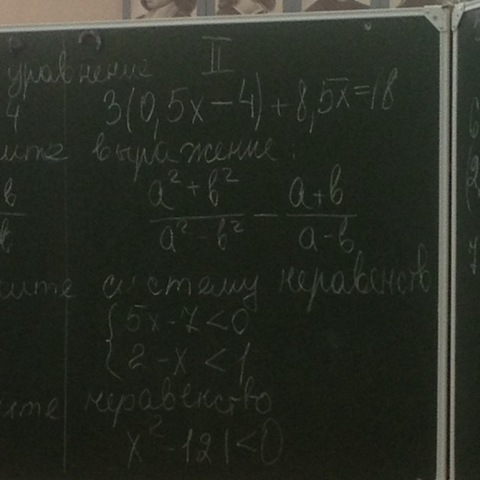 II
уравнение
4 3(0,5x-4)+8,5x=18
выражение.
(a²+b²)/(a²-b²) - (a+b)/(a-b)
систему неравенств
{5x-7<0
{2-x<1
неравенство
x²-121<0